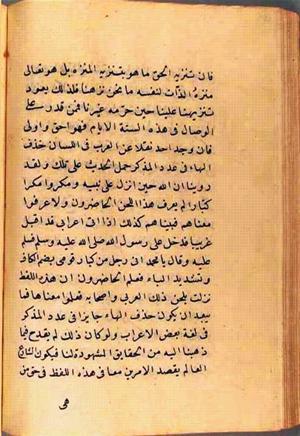 فان تنزيه الحق ما هو بتنزيه المنزه بل هو تعالى
منزه الذات لنفسه ما نحن نزهناه فلذلك يعود
تنزيهنا علينا حين حرمه غيرنا فمن قدر على
الوصال فى هذه الستة الايام فهو احق واولى
فان وجد احد نقلا عن العرب فى اللسان حذف
الهاء فى عدد المذكر حمل الحديث على تلك ولقد
روينا ان الله حين انزل على نبيه ومكروا مكرا
كبارا لم يعرف هذا اللحن الحاضرون ولا عرفوا
معناه فبيناهم كذلك اذا اتى اعرابى قد اقبل
غريبا فدخل على رسول الله صلى الله عليه وسلم فسلم
عليه وقال يا محمد انى رجل من كبار قومى بضم الكاف
وتشديد الباء فعلم الحاضرون ان هذه اللفظ
نزلت بلحن ذلك العربى واصحابه فعلموا معناها فما
يبعد ان يكون حذف الهاء جايزا فى عدد المذكر
فى لغة بعض الاعراب ولو كان ذلك لم يقدح فيما
ذهبنا اليه من الحقايق المشهودة لنا فيكون الشارع
العالم يقصد الامرين معا فى هذه اللفظ فى حق من
هى